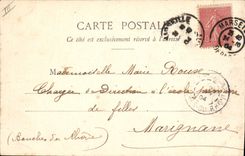 CARTE POSTALE
Ce côté est exclusivement réservé à l'adresse
MARSEILLE
MARSEI
Mademoiselle Marie Rouse
Chargée de Direction à l'école primaire
de filles
Marignane
(Bouches du Rhône)